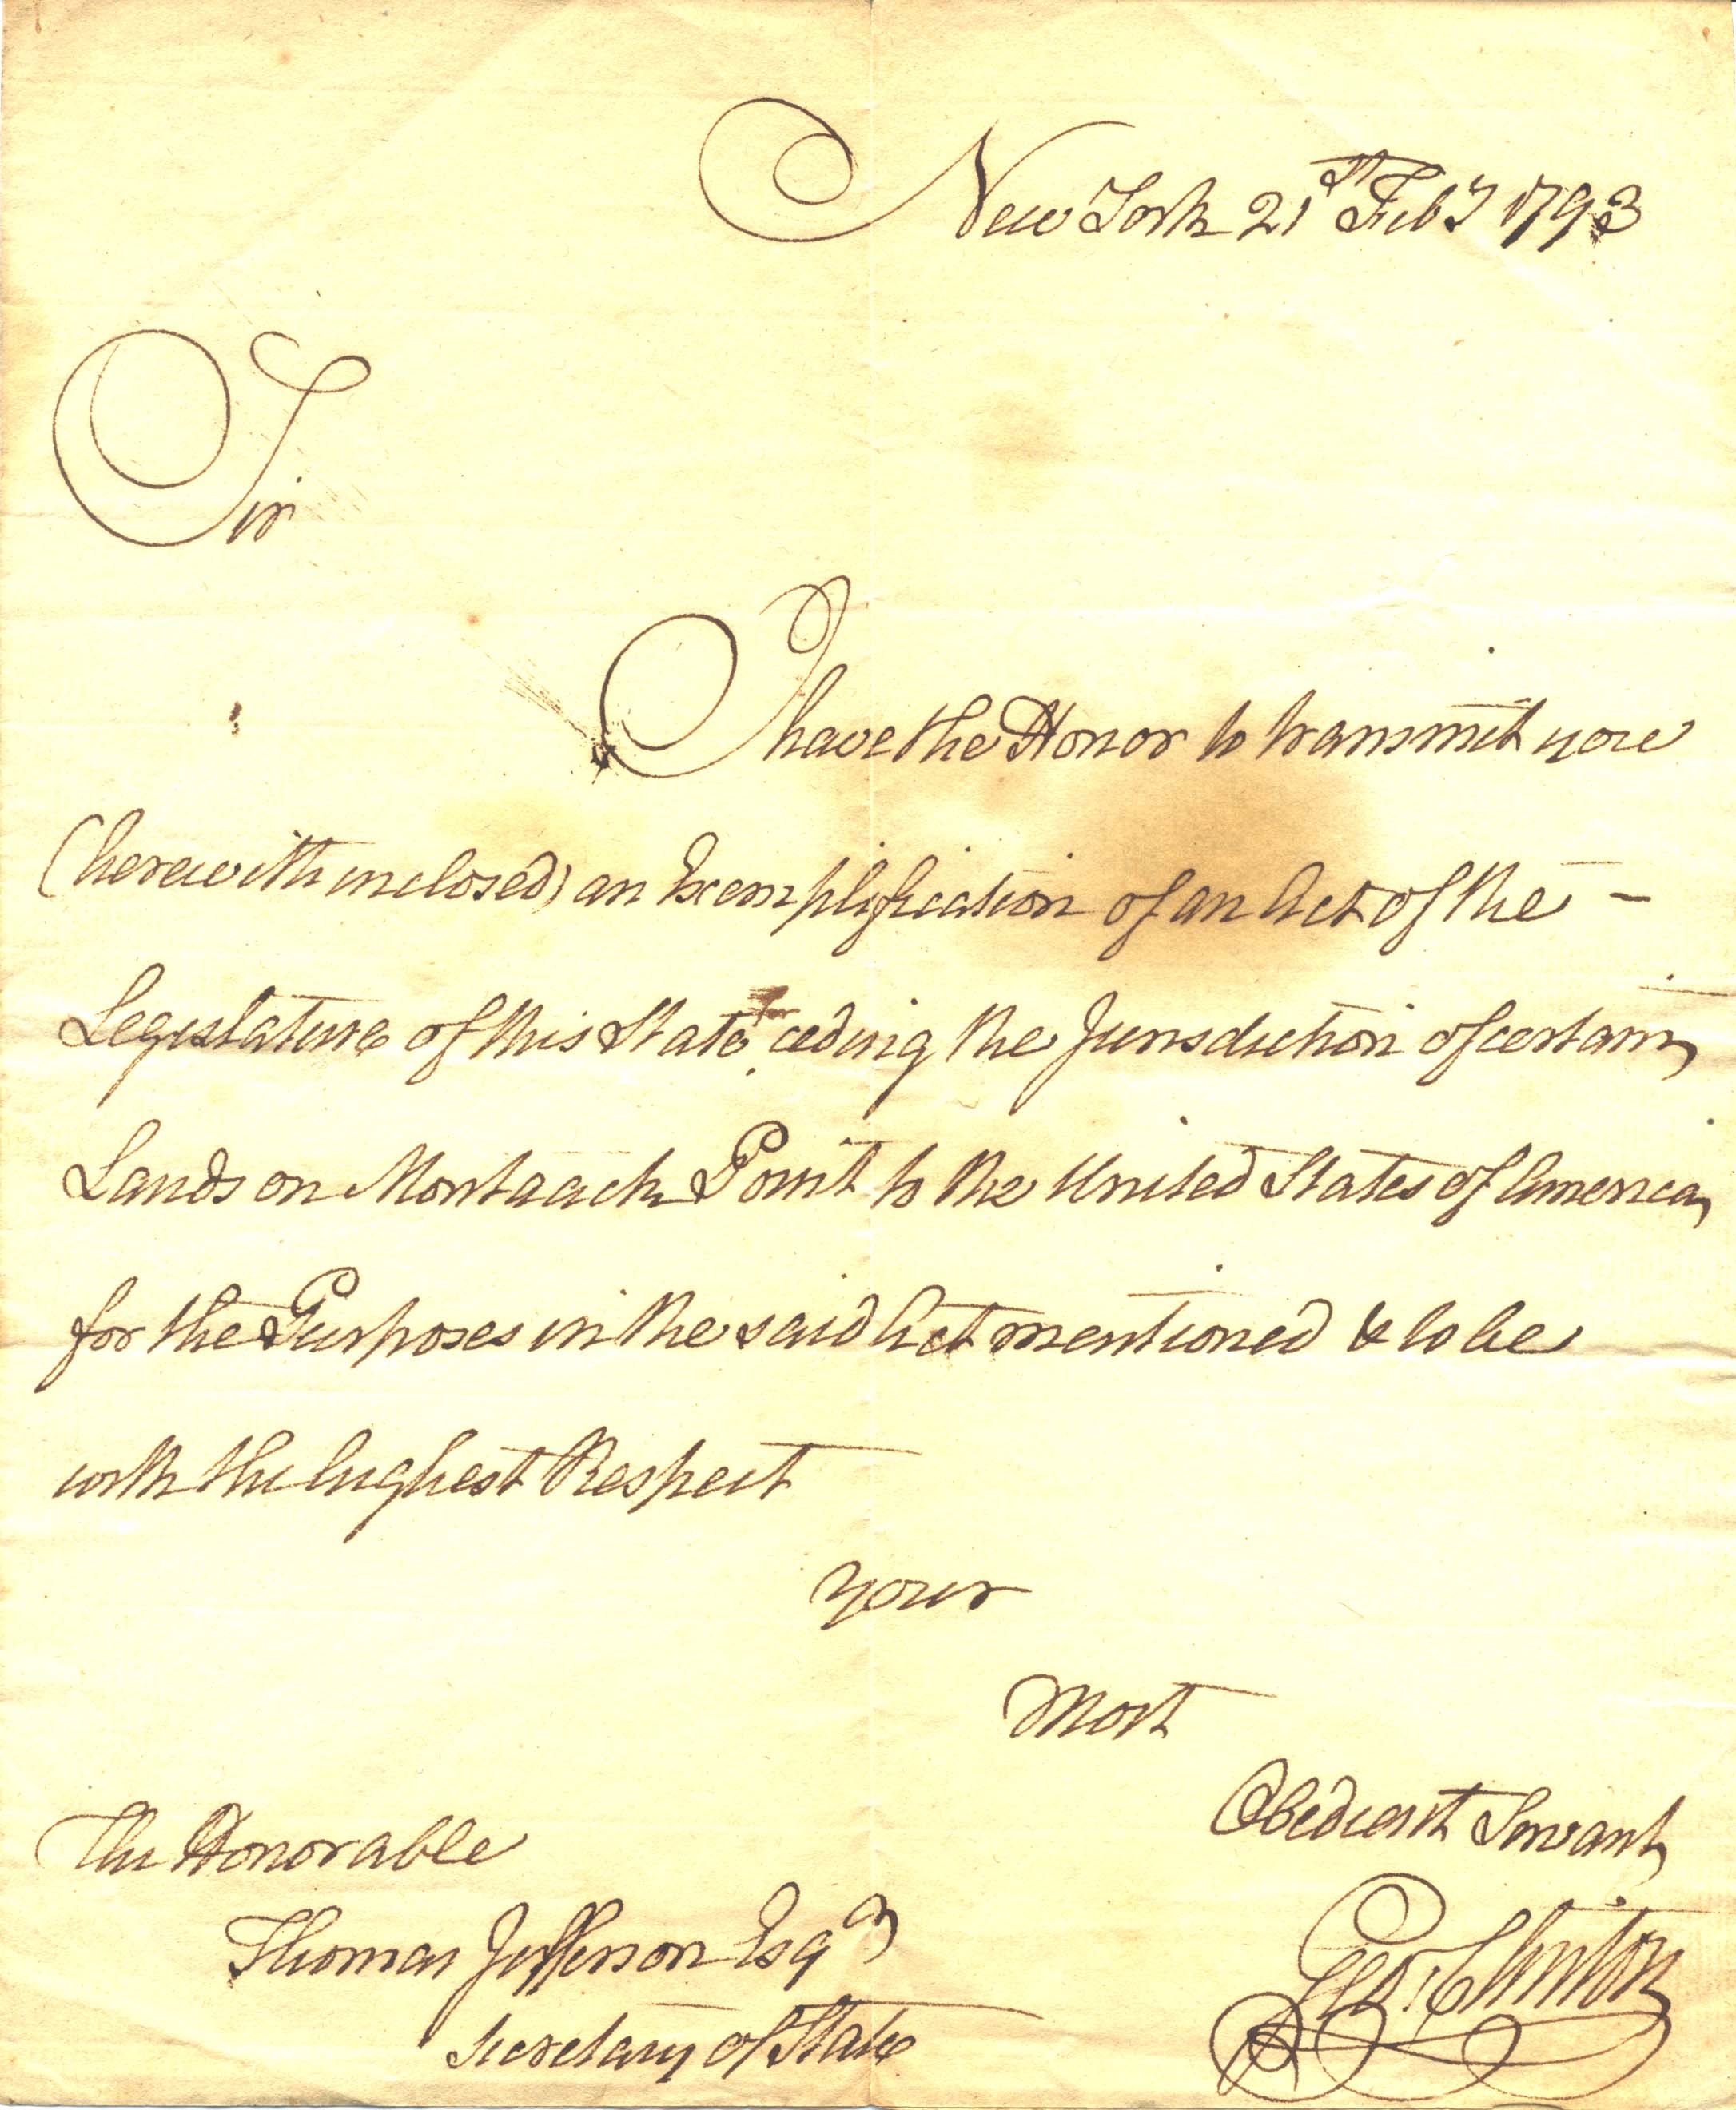 New York 21st Feby 1793
Sir
I have the Honor to transmit you
(herewith inclosed) an Exemplification of an Act of the –
Legislature of this State for ceding the Jurisdiction of certain
Lands on Montaack Point to the United States of America
for the Purposes in the said Act mentioned & to be
with the highest Respect
your
most
Obedient Servant
Geo: Clinton
The Honorable
Thomas Jefferson Esqr
Secretary of State